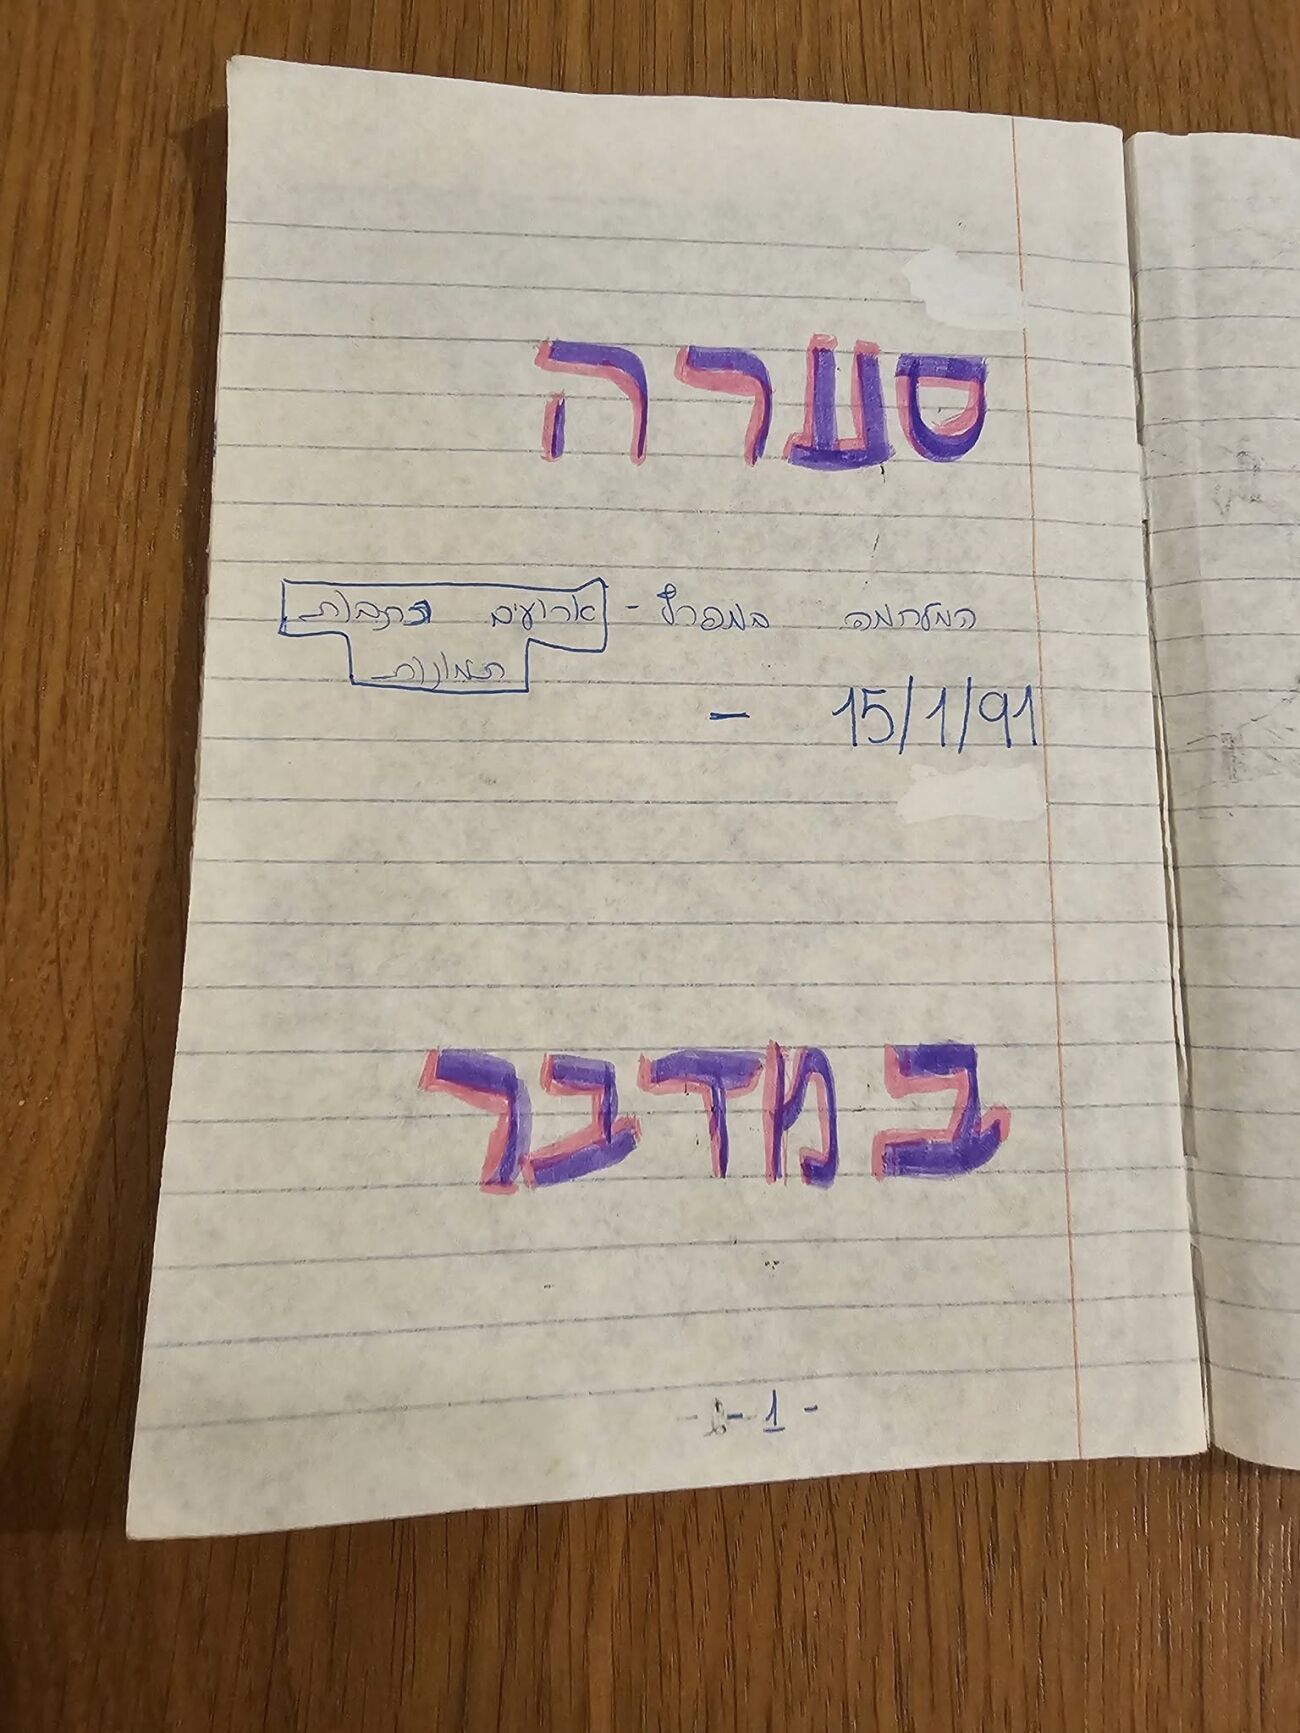 סערה
המלחמה במפרץ - ארועים כתבות
תמונות
15/1/91 -
במדבר
- 1 -